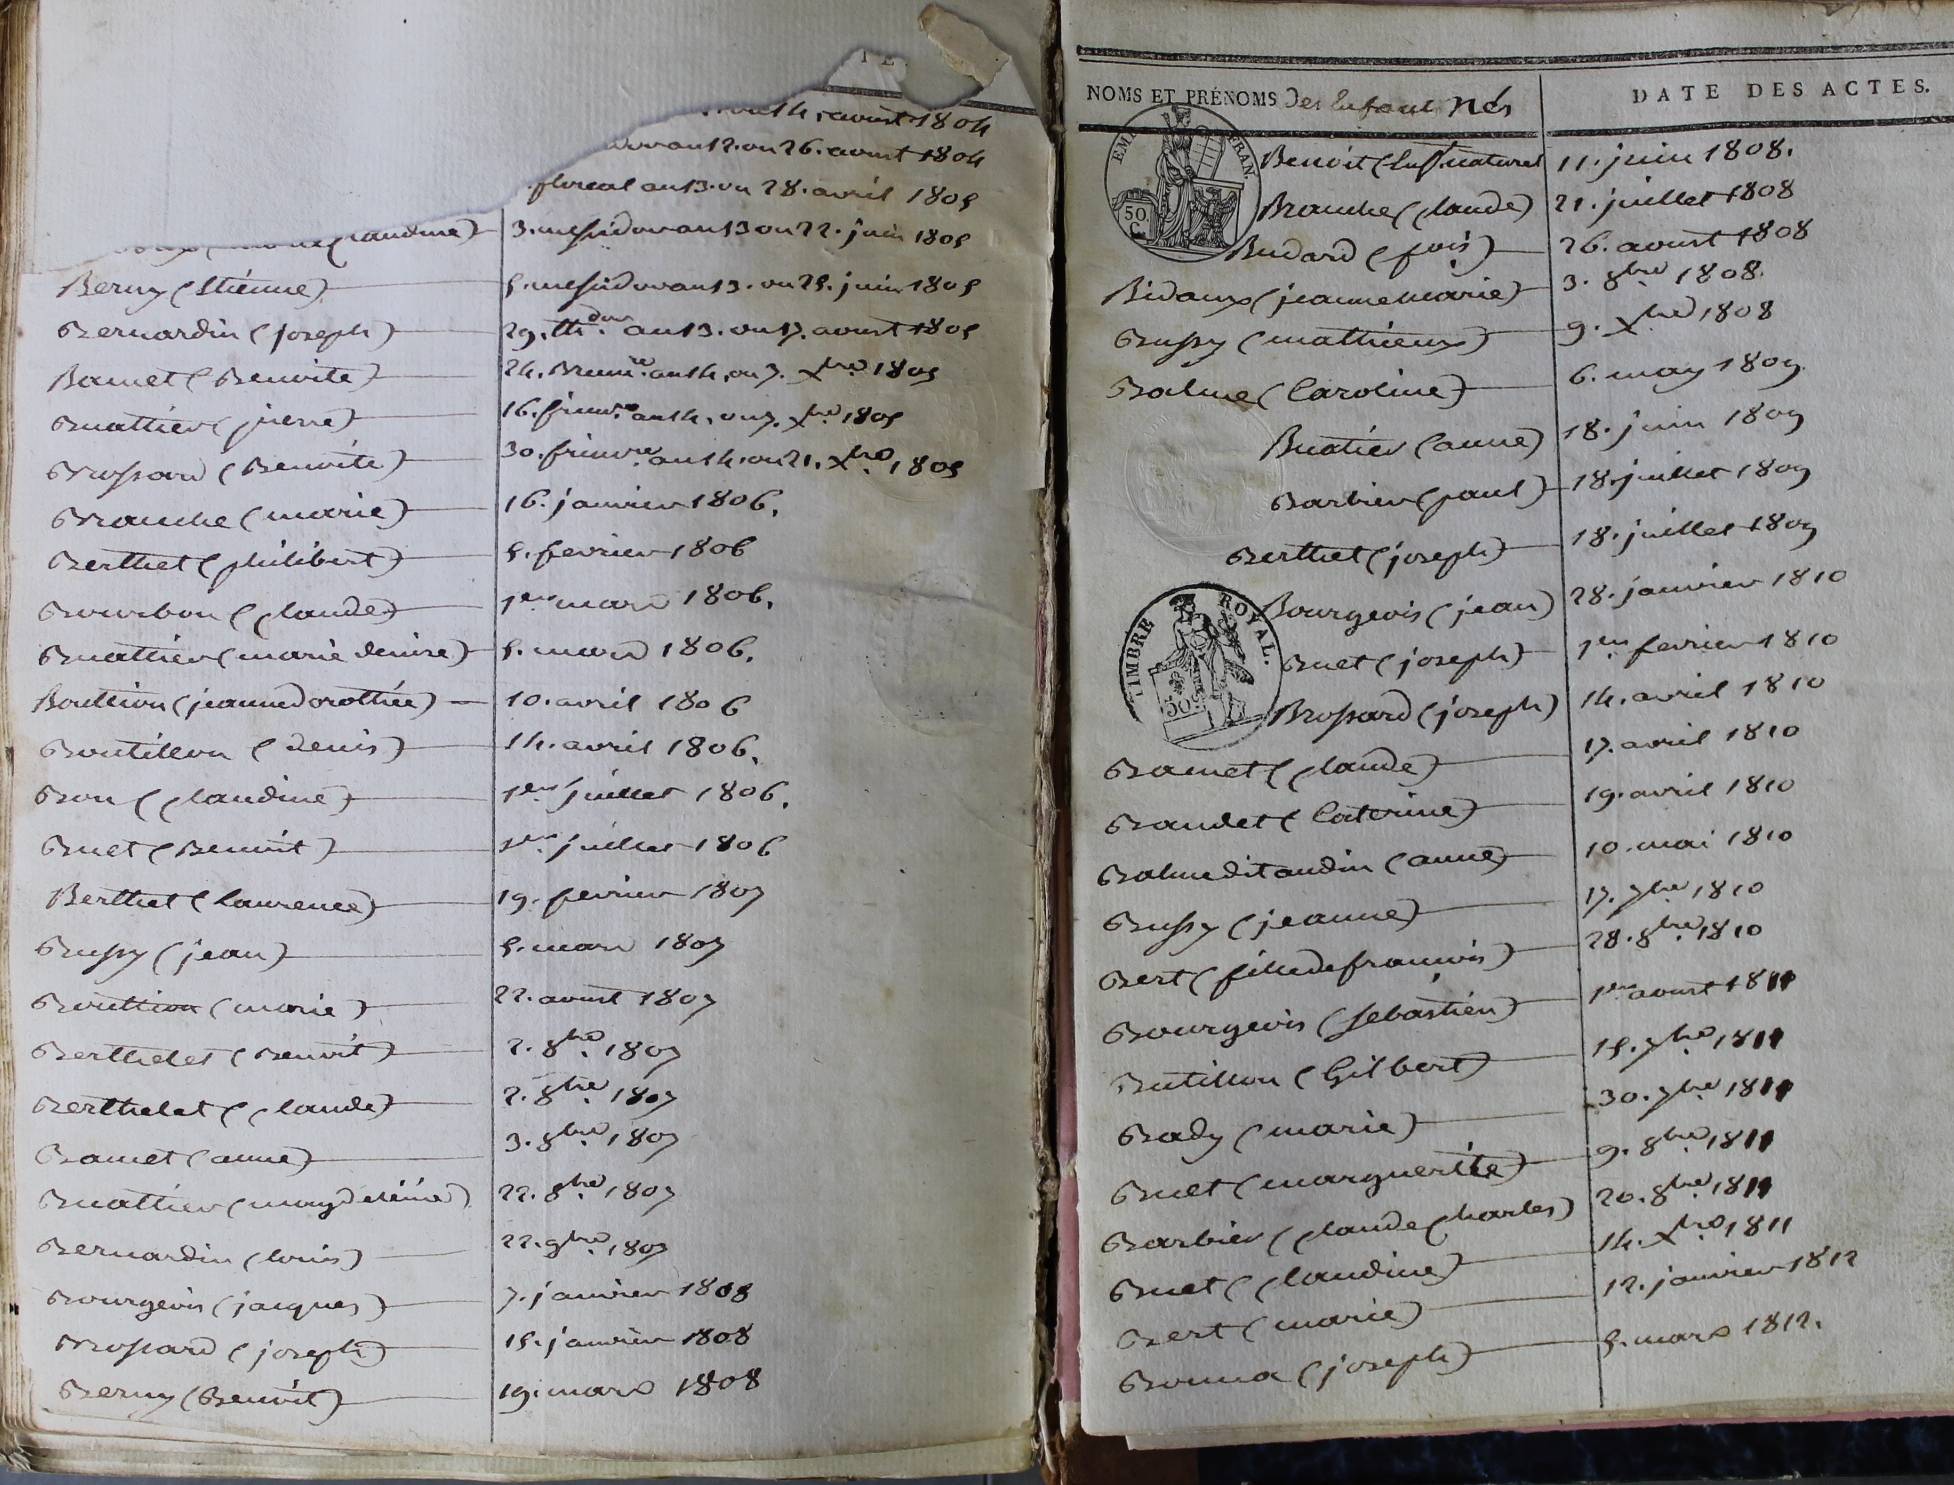 I E.
aoust 1804
an 12. ou 26. aoust 1804
floreal an 13. ou 28. avril 1805
claudine) 3. messidor an 13 ou 22. juin 1805
Berny (Etiénne) 5. messidor an 13. ou 25. juin 1805
Bernardin (joseph) 29. th.dor an 13. ou 17. aoust 1805
Bamet (Benoite) 24. Brum.re an 14, ou Xbre 1805
Buattier (pierre) 16. frim.re an 14, ou 7. Xbre 1805
Brossard (Benoite) 30. frim.re an 14. ou 21. Xbre 1805
Branche (marie) 16. janvier 1806.
Berthet (philibert) 5. fevrier 1806
Bourbon (Claude) 1er mars 1806.
Buattier (marie denise) 5. mars 1806.
Boullion (jeanne dorothée) 10. avril 1806
Boutillon (denis) 14. avril 1806.
Bon (Claudine) 1er juillet 1806.
Buet (Benoit) 1er juillet 1806
Berthet (laurence) 19. fevrier 1807
Bussy (jean) 5. mars 1807
Boullion (marie) 22. aoust 1807
Berthelet (Benoit) 2. 8bre 1807
Berthelet (Claude) 2. 8bre 1807
Bamet (anne) 3. 8bre 1807
Buattier (magdeléine) 22. 8bre 1807
Bernardin (louis) 22. 9bre 1807
Bourgeois (jacques) 7. janvier 1808
Brossard (joseph) 15. janvier 1808
Berny (Benoit) 19. mars 1808
NOMS ET PRÉNOMS des Enfans Nés DATE DES ACTES.
EMP. FRAN.
50. C.
Benoit (Enft naturel 11. juin 1808.
Branche (Claude) 21. juillet 1808
Budard (fois) 26. aoust 1808
Bidaux (jeanne marie) 3. 8bre 1808.
Bussy (mathieux) 9. Xbre 1808
Balme (Caroline) 6. may 1809.
Buatier (anne) 18. juin 1809
Barbier (paul) 18. juillet 1809
Berthet (joseph) 18. juillet 1809
TIMBRE ROYAL.
50c
Bourgeois (jean) 28. janvier 1810
Buet (joseph) 1er fevrier 1810
Brossard (joseph) 14. avril 1810
Bamet (Claude) 17. avril 1810
Baudet (Caterine) 19. avril 1810
Balme dit audin (anne) 10. mai 1810
Bussy (jeanne) 17. 7bre 1810
Bert (fille de francois) 28. 8bre 1810
Bourgeois (Sebastién) 1er aoust 1811
Butillon (Gilbert) 15. 7bre 1811
Bady (marie) 30. 7bre 1811
Buet (marguerite) 9. 8bre 1811
Barbier (Claude Charles) 20. 8bre 1811
Buet (Claudine) 14. Xbre 1811
Bert (marie) 12. janvier 1812
Bonna (joseph) 5. mars 1812.